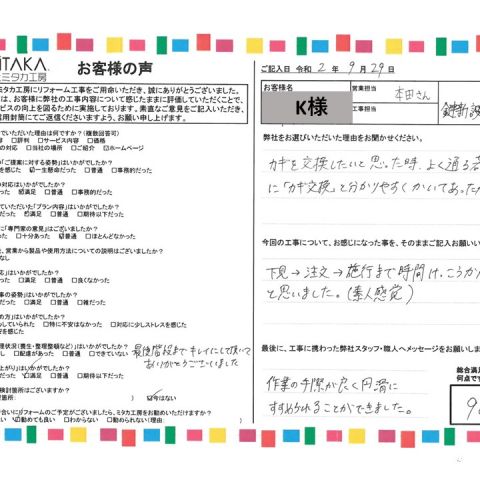 ITAKA
ミタカ工房
お客様の声
ミタカ工房にリフォーム工事をご用命いただき、誠にありがとうございました。
は、お客様に弊社の工事内容について感じたままに評価していただくことで、
ビスの向上を図るために実施しております。素直なご意見をご記入いただき、
信用封筒にてご返信くださいますよう、お願い申し上げます。
ていただいた理由は何ですか？(複数回答可)
□評判 □サービス内容 □価格
の対応 □当社の場所 □ご紹介 □ホームページ
の「ご提案に対する姿勢」はいかがでしたか？
を感じた □一生懸命だった □普通 □事務的だった
の対応はいかがでしたか？
った □満足 □普通 □事務的だった
ていただいた「プラン内容」はいかがでしたか？
だった □満足 □普通 □期待以下だった
に「専門家の意見」はございましたか？
った □十分あった □普通 □ほとんどなかった
、営業から製品や使用方法についての説明はございましたか？
なし
応」はいかがでしたか？
だった □満足 □普通 □良くなかった
事の姿勢」はいかがでしたか？
だった □満足 □普通 □雑だった
め方」はいかがでしたか？
っていられた □特に不安はなかった □対応に少しストレスを感じた
を感じた
理状況(養生・整理整頓など)」はいかがでしたか？
し □配慮があった □普通 □できていない
最後階段までキレイにして頂いて
ありがとうございました
上がり」はいかがでしたか？
だった □満足 □普通 □期待以下だった
検討箇所はございますか？
箇所: ) □今はない
合いにリフォームのご予定がございましたら、ミタカ工房をお勧めいただけますか？
い □勧めても良い □わからない □勧められない(理由: )
ご記入日 令和 2 年 9 月 29 日
お客様名
K様
営業担当
本田さん
工事担当
弊社をお選びいただいた理由をお聞かせください。
カギを交換したいと思った時、よく通る
に「カギ交換」と分かりやすくかいてあった
今回の工事について、お感じになった事を、そのままご記入お願いい
下見→注文→施行まで時間は、こうか
と思いました。(素人感覚)
最後に、工事に携わった弊社スタッフ・職人へメッセージをお願いしま
作業の手際が良く円滑に
すすめられることができました。
総合満足
何点です
9